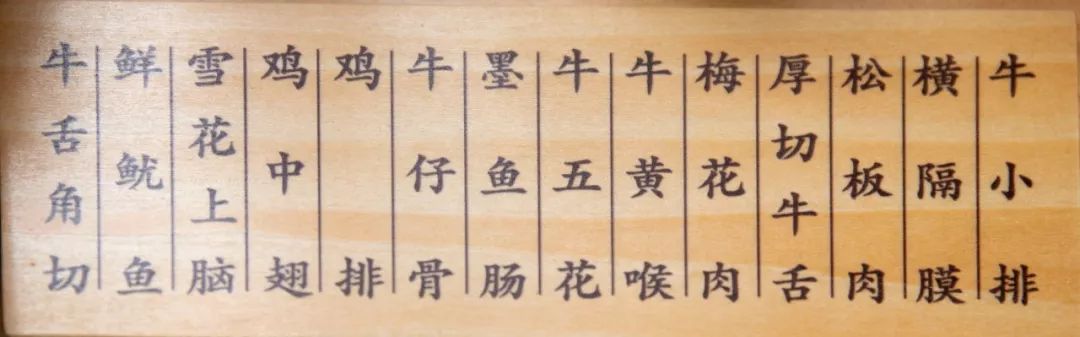 牛小排
横隔膜
松板肉
厚切牛舌
梅花肉
牛黄喉
牛五花
墨鱼肠
牛仔骨
鸡排
鸡中翅
雪花上脑
鲜鱿鱼
牛舌角切